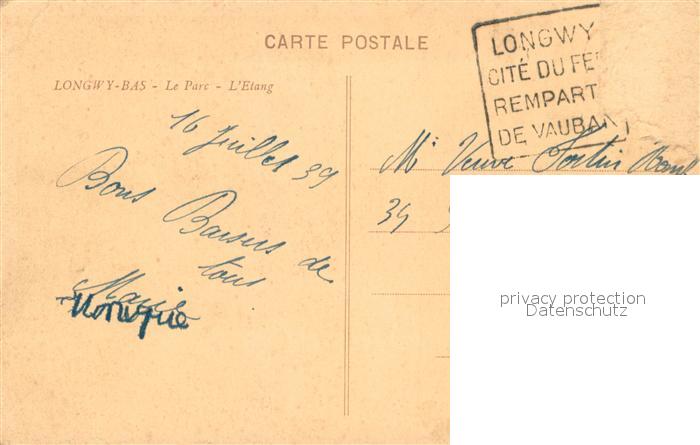 CARTE POSTALE
LONGWY-BAS - Le Parc - L'Etang
LONGWY
CITÉ DU FE
REMPART
DE VAUBAN
16 Juillet 39
Bons Baisers de
tous
Marie
Monique
Mme Veuve
39
privacy protection
Datenschutz